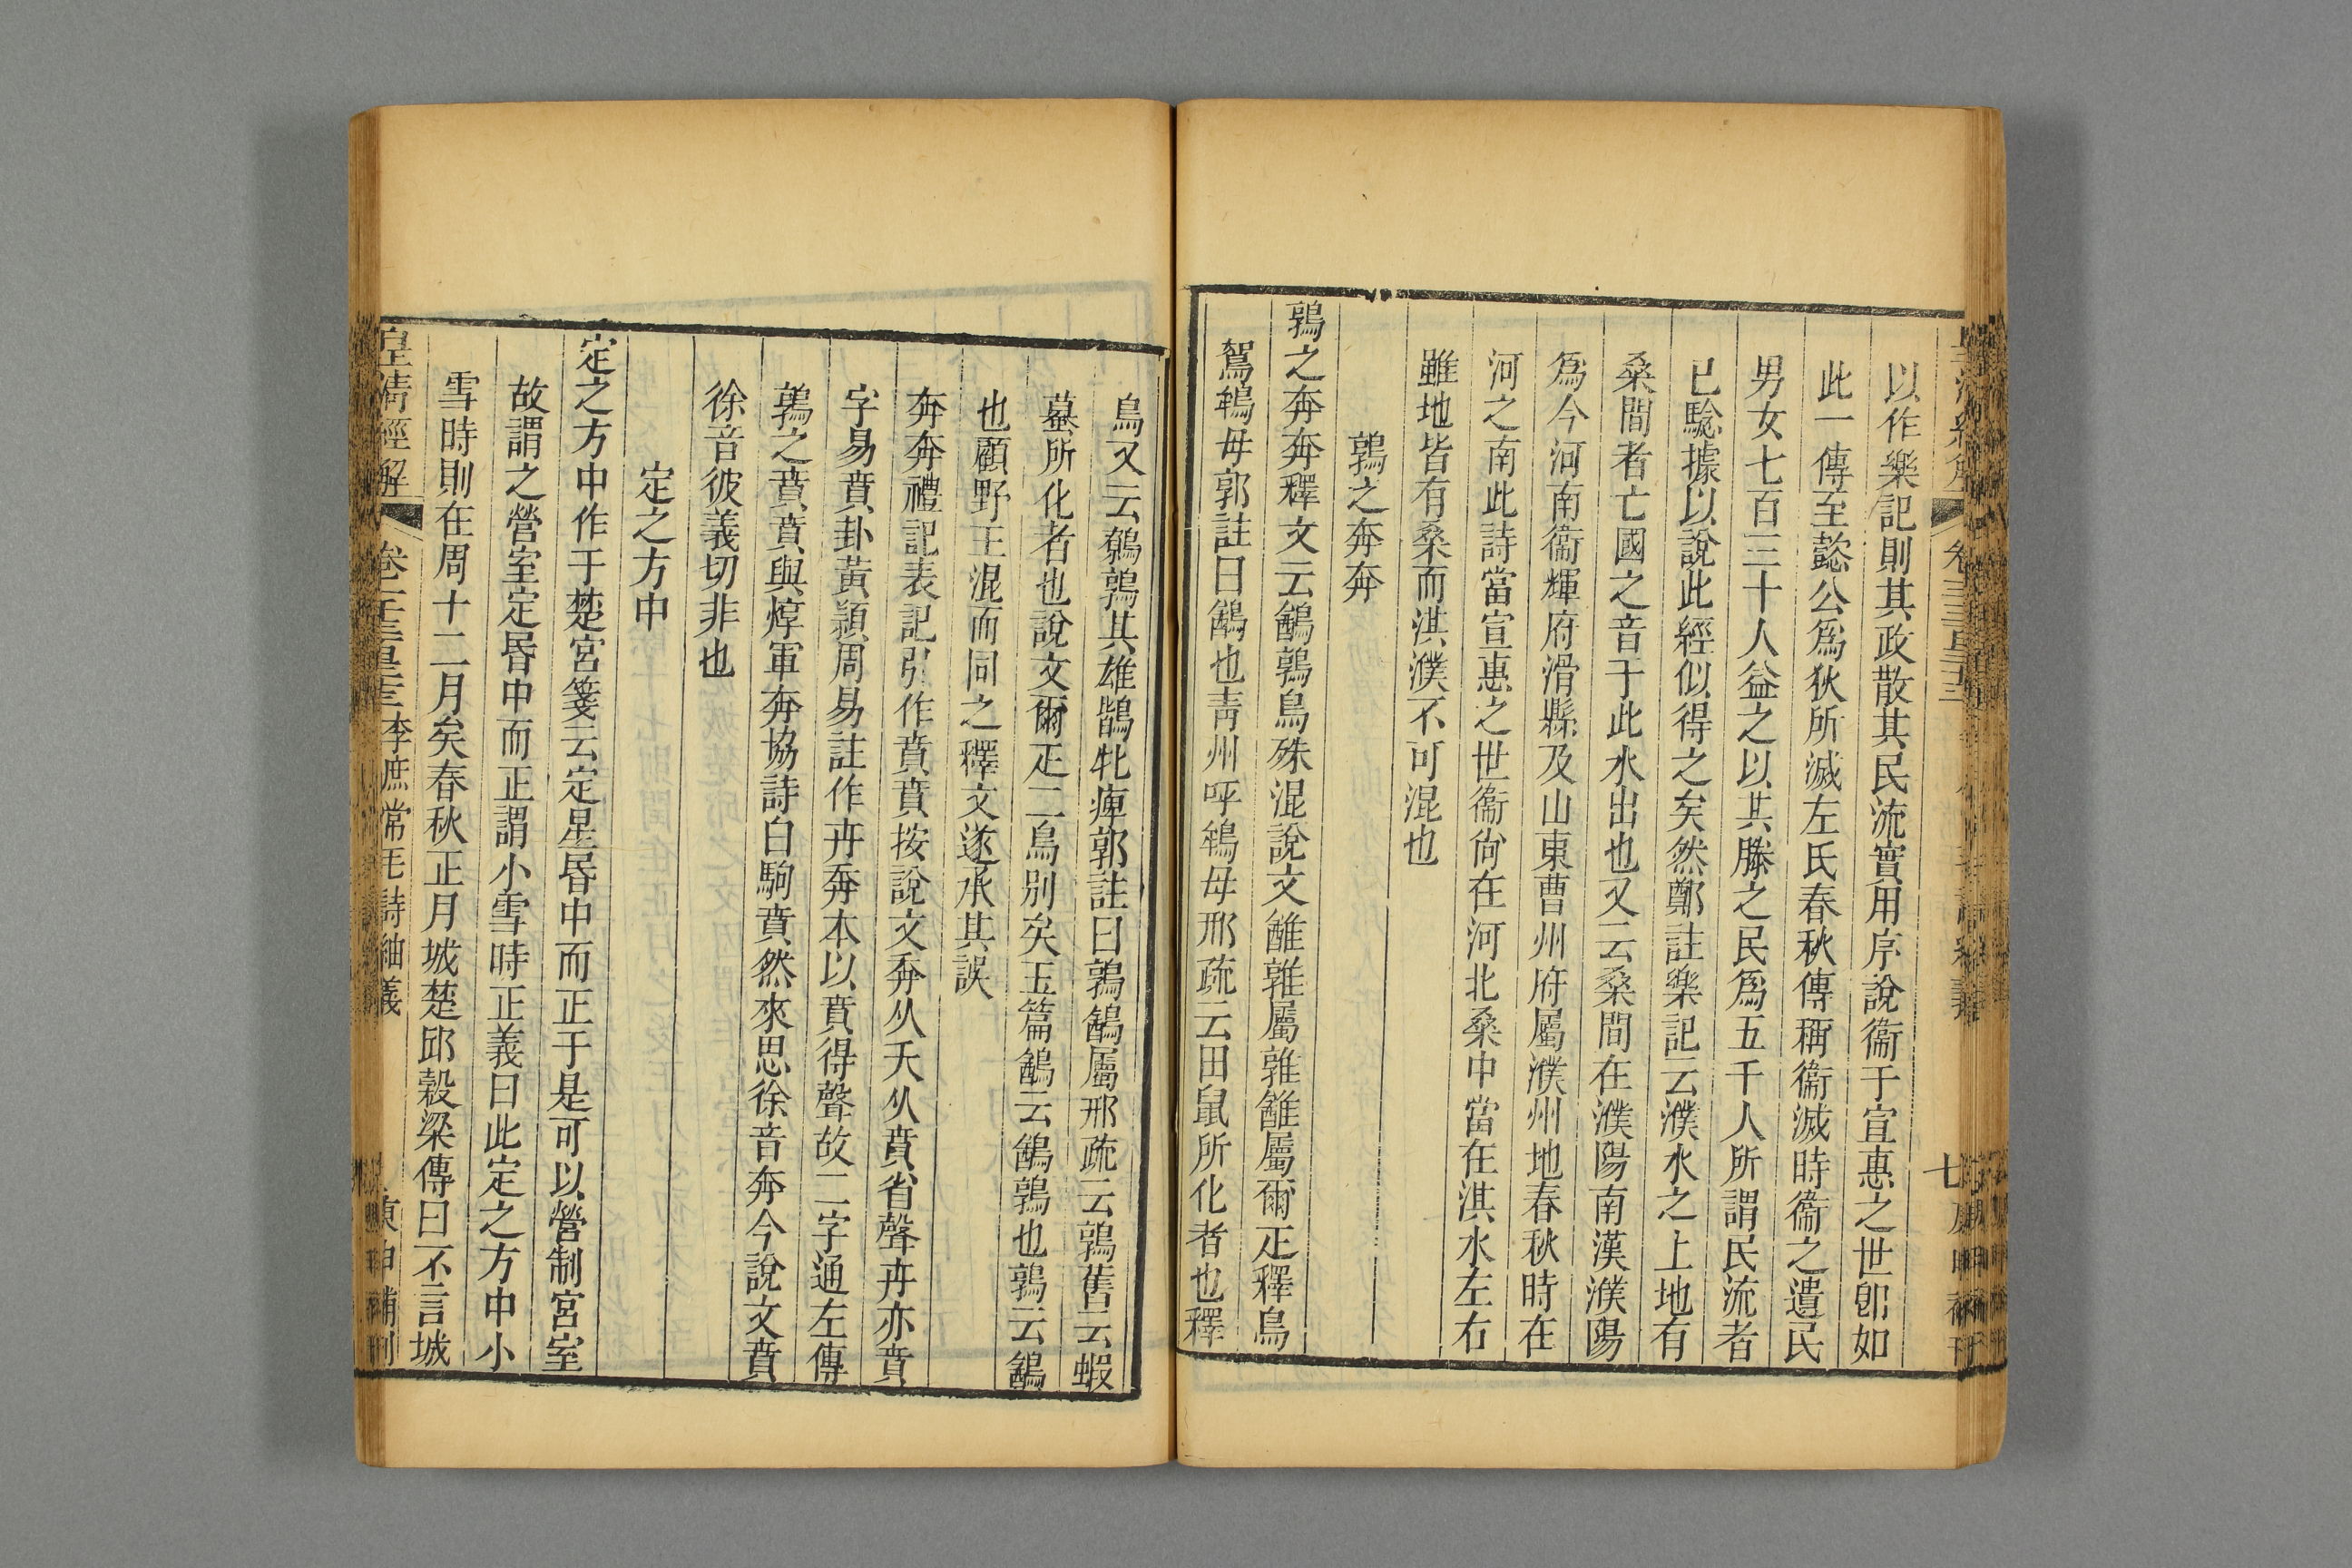 以作樂記則其政散其民流實用序說衞于宣惠之世卽如
此一傳至懿公爲狄所滅左氏春秋傳稱衞滅時衞之遺民
男女七百三十人益之以其滕之民爲五千人所謂民流者
已騐據以說此經似得之矣然鄭註樂記云濮水之上地有
桑間者亡國之音于此水出也又云桑間在濮陽南漢濮陽
爲今河南衞輝府滑縣及山東曹州府屬濮州地春秋時在
河之南此詩當宣惠之世衞尙在河北桑中當在淇水左右
雖地皆有桑而淇濮不可混也
鶉之奔奔
鶉之奔奔釋文云鶕鶉鳥殊混說文雒雜屬雜雒屬爾疋釋鳥
鴽鴾毋郭註曰鶕也靑州呼鴾母邢疏云田鼠所化者也釋
鳥又云鷯鶉其雄鶛牝痺郭註曰鶉鶕屬邢疏云鶉舊云蝦
蟇所化者也說文爾疋二鳥別矣玉篇鶕云鶕鶉也鶉云鶕
也顧野王混而同之釋文遂承其誤
奔奔禮記表記引作賁賁按說文奔从夭从賁省聲卉亦賁
字易賁卦黃潁周易註作卉奔本以賁得聲故二字通左傳
鶉之賁賁與焞軍奔協詩白駒賁然來思徐音奔今說文賁
徐音彼義切非也
定之方中
定之方中作于楚宮箋云定星昏中而正于是可以營制宮室
故謂之營室定昏中而正謂小雪時正義曰此定之方中小
雪時則在周十二月矣春秋正月城楚邱穀梁傳曰不言城
皇淸經解
李庶常毛詩紬義
庚申補刊
七